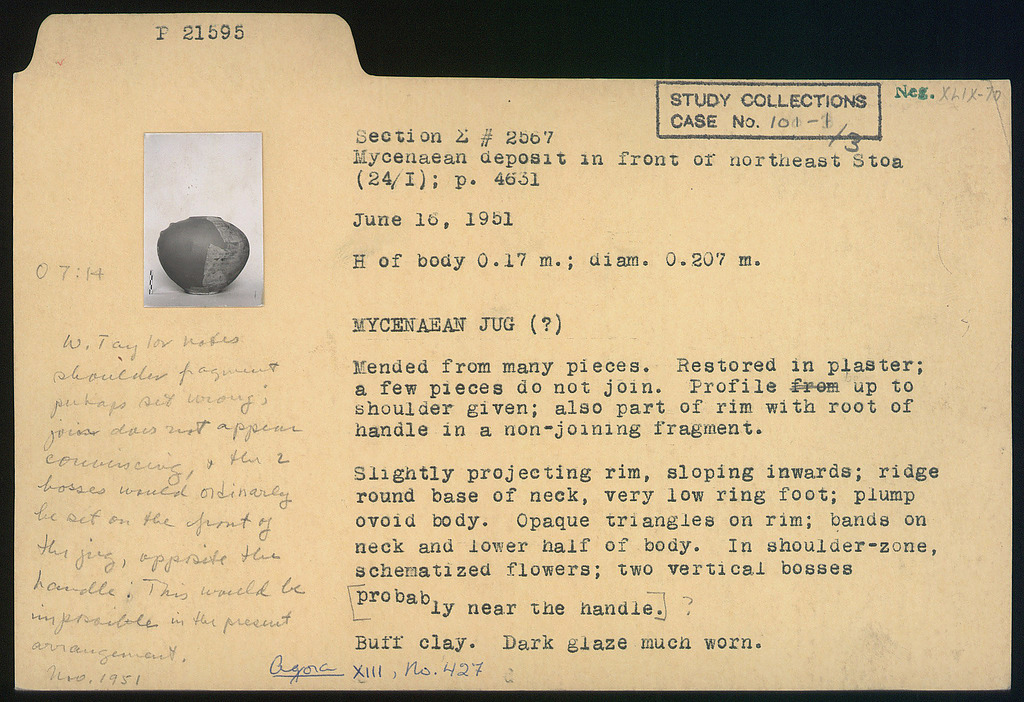 P 21595
STUDY COLLECTIONS
CASE No. 101-
/3
Neg. XLIX-70
Section Σ # 2567
Mycenaean deposit in front of northeast Stoa
(24/I); p. 4631
June 16, 1951
H of body 0.17 m.; diam. 0.207 m.
MYCENAEAN JUG (?)
Mended from many pieces. Restored in plaster;
a few pieces do not join. Profile from up to
shoulder given; also part of rim with root of
handle in a non-joining fragment.
Slightly projecting rim, sloping inwards; ridge
round base of neck, very low ring foot; plump
ovoid body. Opaque triangles on rim; bands on
neck and lower half of body. In shoulder-zone,
schematized flowers; two vertical bosses
[probably near the handle.] ?
Buff clay. Dark glaze much worn.
Agora XIII, No. 427
O 7:14
W. Taylor notes
shoulder fragment
perhaps set wrong;
join does not appear
convincing, + the 2
bosses would ordinarily
be set on the front of
the jug, opposite the
handle. This would be
impossible in the present
arrangement.
Nov. 1951